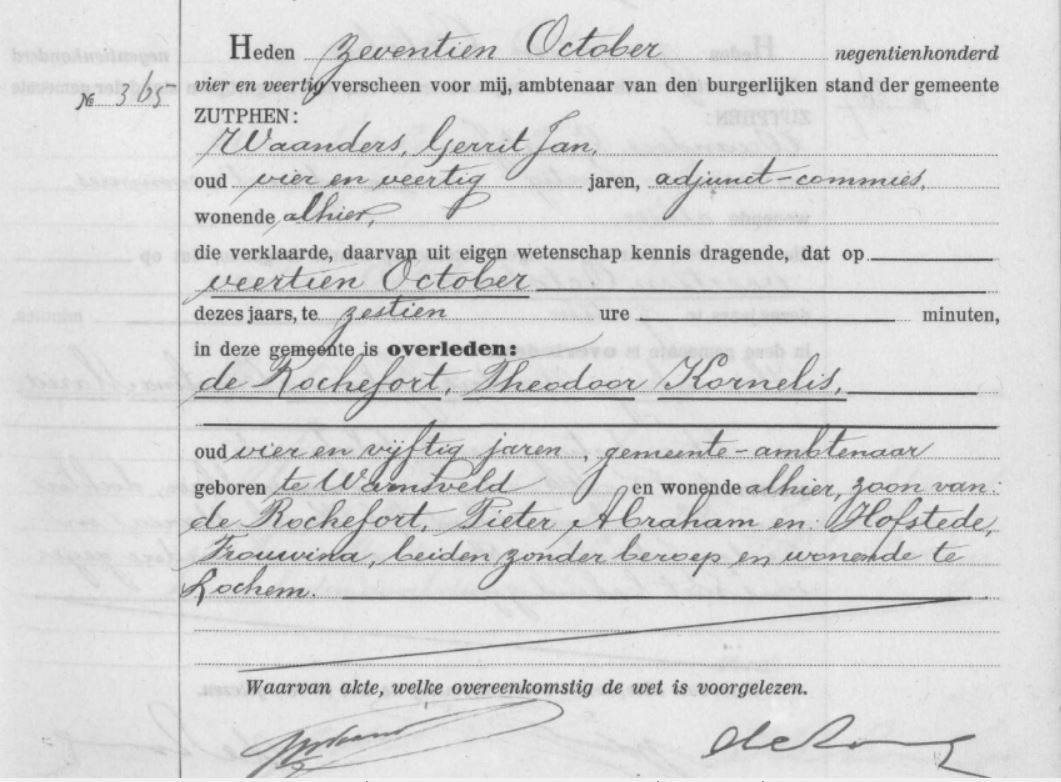 Heden zeventien October negentienhonderd
vier en veertig verscheen voor mij, ambtenaar van den burgerlijken stand der gemeente
№ 365
ZUTPHEN:
Waanders, Gerrit Jan,
oud vier en veertig jaren, adjunct-commies,
wonende alhier,
die verklaarde, daarvan uit eigen wetenschap kennis dragende, dat op
veertien October
dezes jaars, te zestien ure minuten,
in deze gemeente is overleden:
de Rochefort, Theodoor Kornelis,
oud vier en vijftig jaren, gemeente-ambtenaar
geboren te Warnsveld en wonende alhier, zoon van:
de Rochefort, Pieter Abraham en Hofstede,
Trouwina, beiden zonder beroep en wonende te
Lochem.
Waarvan akte, welke overeenkomstig de wet is voorgelezen.